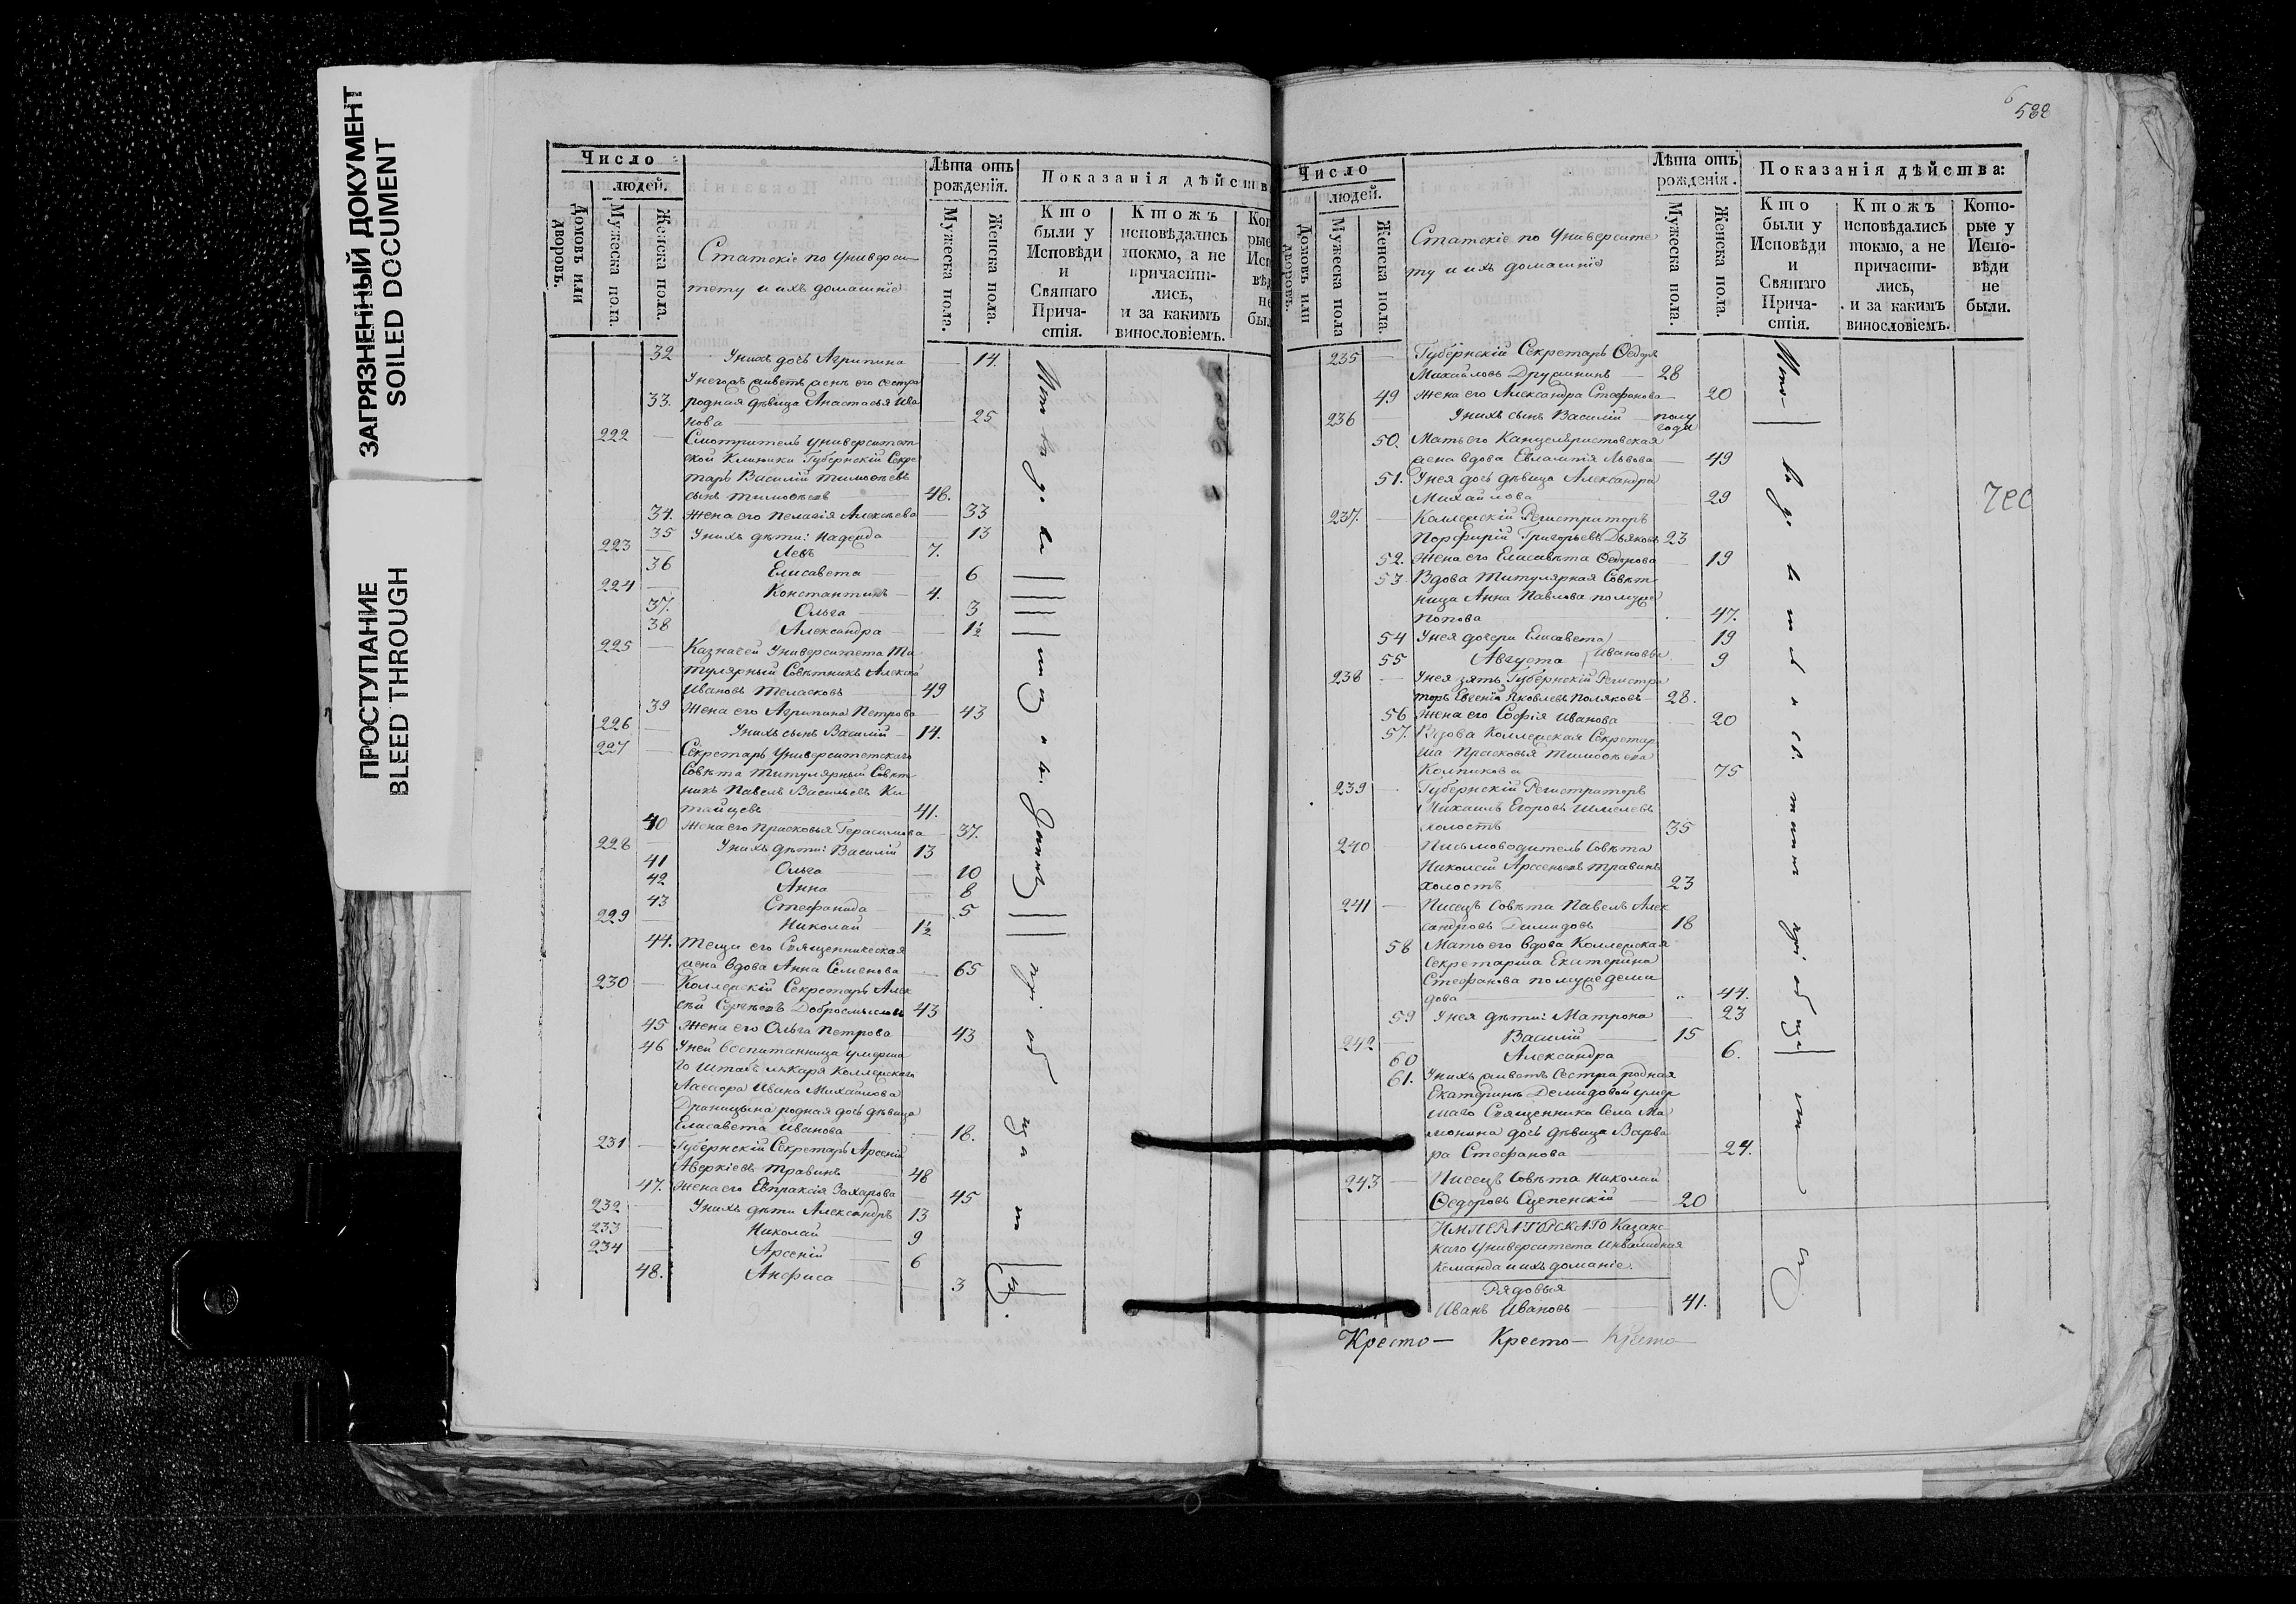 ЗАГРЯЗНЕННЫЙ ДОКУМЕНТ
SOILED DOCUMENT
ПРОСТУПАНИЕ
BLEED THROUGH
Число
людей.
Домовъ или дворовъ.
Мужеска пола.
Женска пола.
Статскіе по Универси-
тету и ихъ домашніе
Лѣта отъ рожденія.
Мужеска пола.
Женска пола.
Показанія дѣйств
Кто были у Исповѣди и Святаго Прича-стія.
Ктожъ исповѣдались токмо, а не причасти-лись, и за какимъ винословіемъ.
32 У нихъ дочь Агрипина 14.
У него живетъ жены его сестра
33. родная дѣвица Анастасья Ива
нова 25
222 Смотритель университет
ской Клиники Губернскій Секре
тарь Василій Тимоѳеевъ
сынъ Тимоѳеевъ 48.
34. Жена его Пелагія Алексѣева 33
35 У нихъ дѣти: Надежда 13
223 Левъ 7.
36 Елисавета 6
224 Константинъ 4.
37. Ольга 3
38 Александра 1½
225 Казначей Университета Ти
тулярный Совѣтникъ Алексѣй
Ивановъ 49
39 Жена его Агрипина Петрова 43
226 У нихъ сынъ Василій 14.
227 Секретарь Университетскаго
Совѣта Титулярный Совѣт
никъ Павелъ Васильевъ Ки
тайцевъ 41.
40 Жена его Прасковья Герасимова 37.
228 У нихъ дѣти: Василій 13
41 Ольга 10
42 Анна 8
43 Стефанида 5
229 Николай 1½
44. Теща его Священническая
жена вдова Анна Семенова 65
230 Коллежскій Секретарь Алек
сѣй Сергѣевъ Добросмысловъ 43
45 Жена его Ольга Петрова 43
46 У ней воспитанница умерша
го Штабъ лѣкаря Коллежскаго
Ассесора Ивана Михайлова
Драницына родная дочь дѣвица
Елисавета Иванова 18.
231 Губернскій Секретарь Арсеній
Аверкіевъ Травинъ 48
47. Жена его Евпраксія Захарова 45
232 У нихъ дѣти Александръ 13
233 Николай 9
234 Арсеній 6
48. Анфиса 3
588
Число
людей.
Домовъ или дворовъ.
Мужеска пола
Женска пола.
Статскіе по Университе
ту и ихъ домашніе
Лѣта отъ рожденія.
Мужеска пола.
Женска пола.
Показанія дѣйства:
Кто были у Исповѣди и Святаго Прича-стія.
Ктожъ исповѣдались токмо, а не причасти-лись, и за какимъ винословіемъ.
Кото-рые у Испо-вѣди не были.
235 Губернскій Секретарь Ѳедоръ
Михайловъ Дружининъ 28
49 Жена его Александра Стефанова 20
236 У нихъ сынъ Василій полу
года
50. Мать его Канцеляристовская
жена вдова Евлампія Львова 49
51. У нея дочь дѣвица Александра
Михайлова 29
237. Коллежскій Регистраторъ
Порфирій Григорьевъ Дьяковъ 23
52. Жена его Елисавѣта Ѳедорова 19
53. Вдова Титулярная Совѣт
ница Анна Павлова по мужѣ
Попова 47.
54 У нея дочери Елисавета 19
Ивановы
55 Августа 9
238 У нея зять Губернскій Регистра
торъ Евгеній Яковлевъ Поляковъ 28.
56 Жена его Софія Иванова 20
57. Вдова Коллежская Секретар
ша Прасковья Тимоѳеева
Колпикова 75
239 Губернскій Регистраторъ
Михаилъ Егоровъ Шмелевъ
холостъ 35
240 Письмоводитель Совѣта
Николай Арсеньевъ Травинъ
холостъ 23
241 Писецъ Совѣта Павелъ Алек
сандровъ Димидовъ 18
58 Мать его вдова Коллежская
Секретарша Екатерина
Стефанова по мужѣ Деми
дова 44.
59 У нея дѣти: Матрона 23
242 Василій 15
60 Александра 6.
61. У нихъ живетъ Сестра родная
Екатеринѣ Демидовой умер
шаго Священника Села Ма
монина дочь дѣвица Варва
ра Стефанова 24.
243 Писецъ Совѣта Николай
Ѳедоровъ Сцепенскій 20
ИМПЕРАТОРСКАГО Казанс
каго Университета Инвалидная
Команда и ихъ доманіе.
Рядовыя
Иванъ Ивановъ 41.
Кресто— Кресто— Кресто